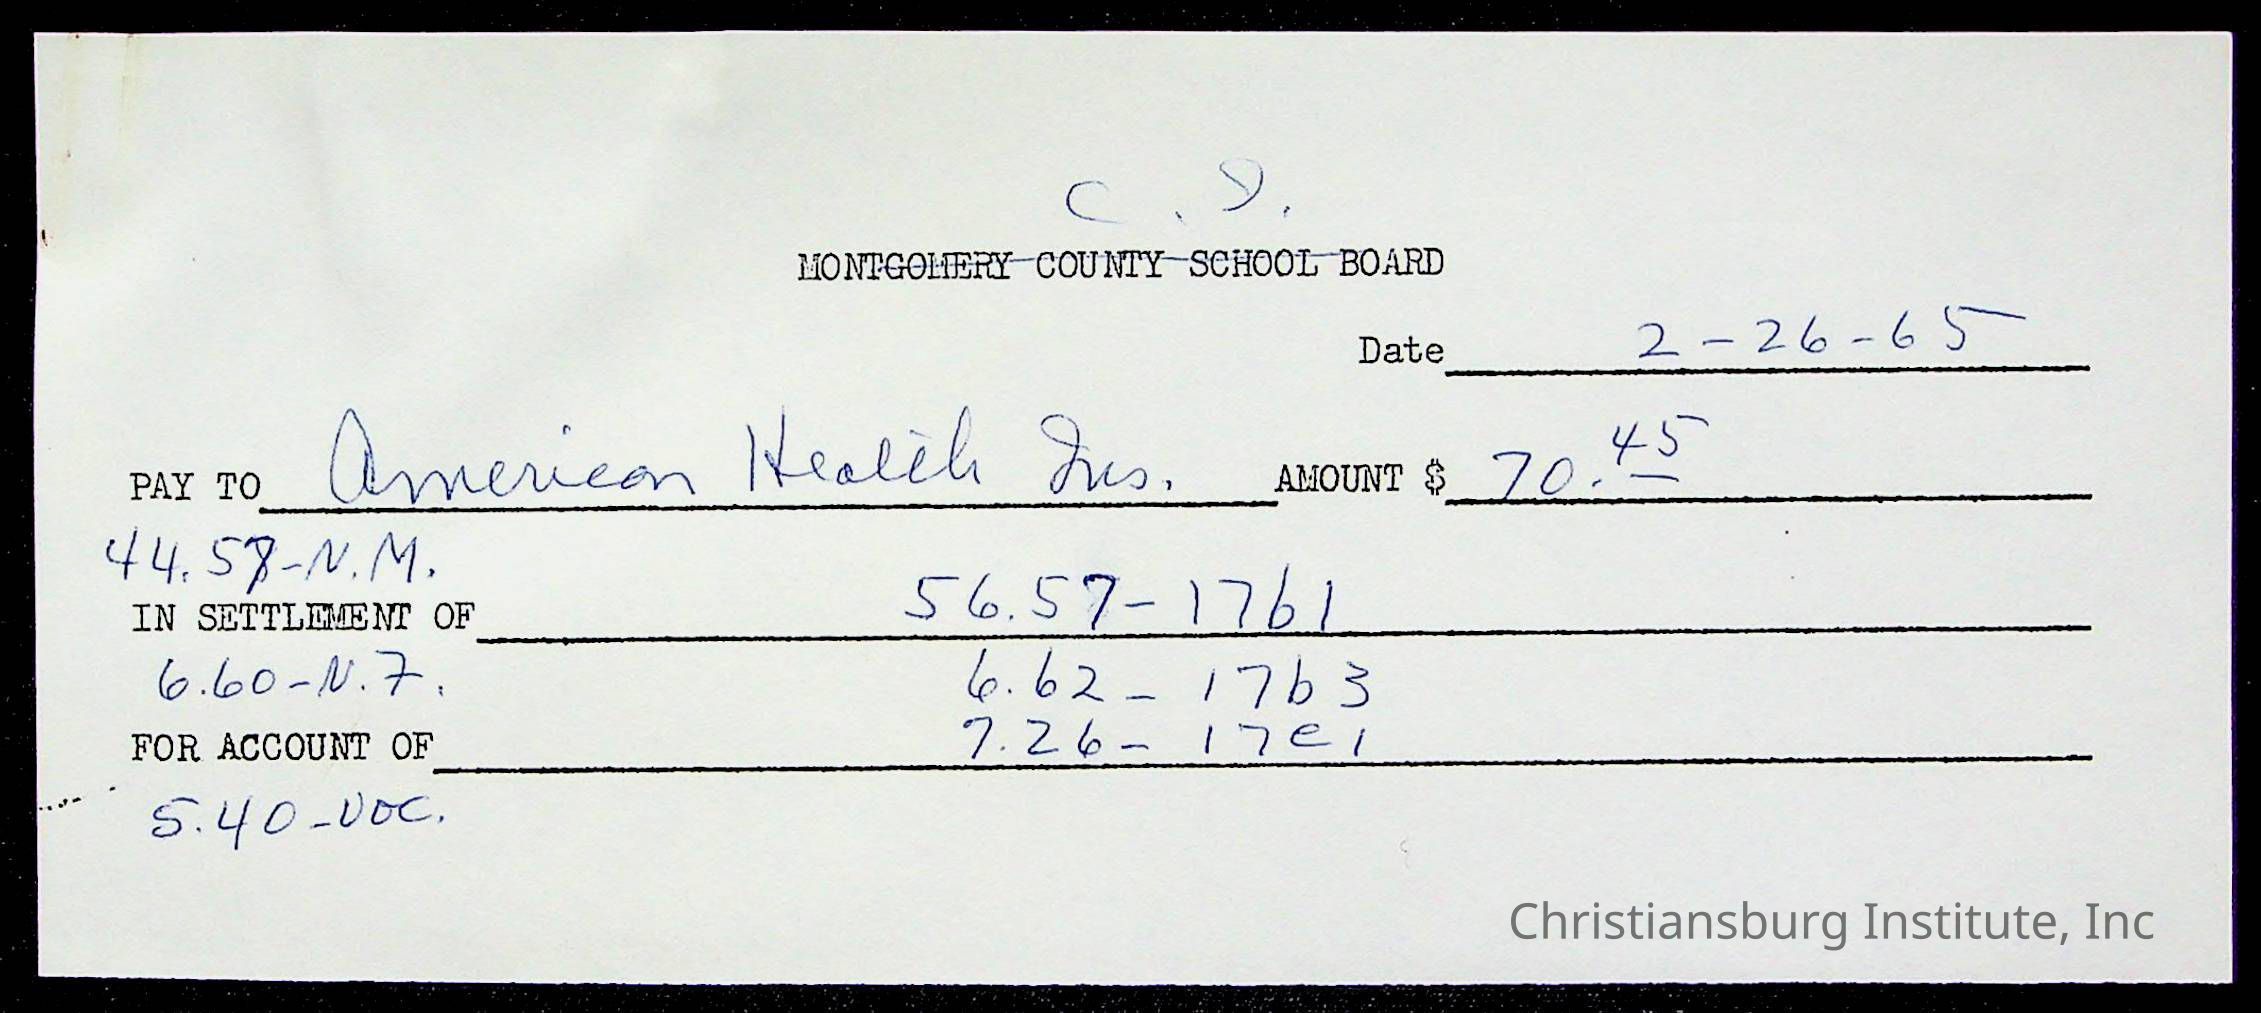 C. I.
MONTGOMERY COUNTY SCHOOL BOARD
Date 2-26-65
PAY TO American Health Ins. AMOUNT $ 70.45
44.57-N.M.
IN SETTLEMENT OF 56.57-17b1
6.60-N.F. 6.62-17b3
FOR ACCOUNT OF 7.26-17c1
5.40-VOC.
Christiansburg Institute, Inc